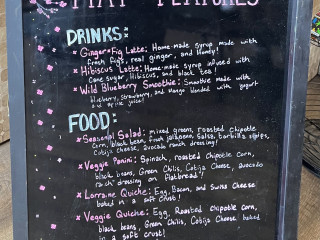 MAY FEATURES
DRINKS:
* Ginger-Fig Latte: Home-made syrup made with
fresh figs, real ginger, and Honey!
* Hibiscus Latte: Home-made syrup infused with
Cane sugar, Hibiscus, and black tea!
* Wild Blueberry Smoothie: Smoothie made with
blueberry, strawberry, and Mango blended with yogurt
and apple juice!
FOOD:
* Seasonal Salad: mixed greens, roasted chipotle
corn, black bean, fresh jalapeno salsa, tortilla strips,
Cotija cheese, avocado ranch dressing!
* Veggie Panini: Spinach, roasted chipotle corn,
black beans, Green Chilis, Cotija Cheese, avocado
ranch dressing on flatbread!
* Lorraine Quiche: Egg, Bacon, and Swiss Cheese
baked in a soft crust!
* Veggie Quiche: Egg, Roasted chipotle corn,
black beans, Green Chilis, Cotija Cheese baked
in a soft crust!